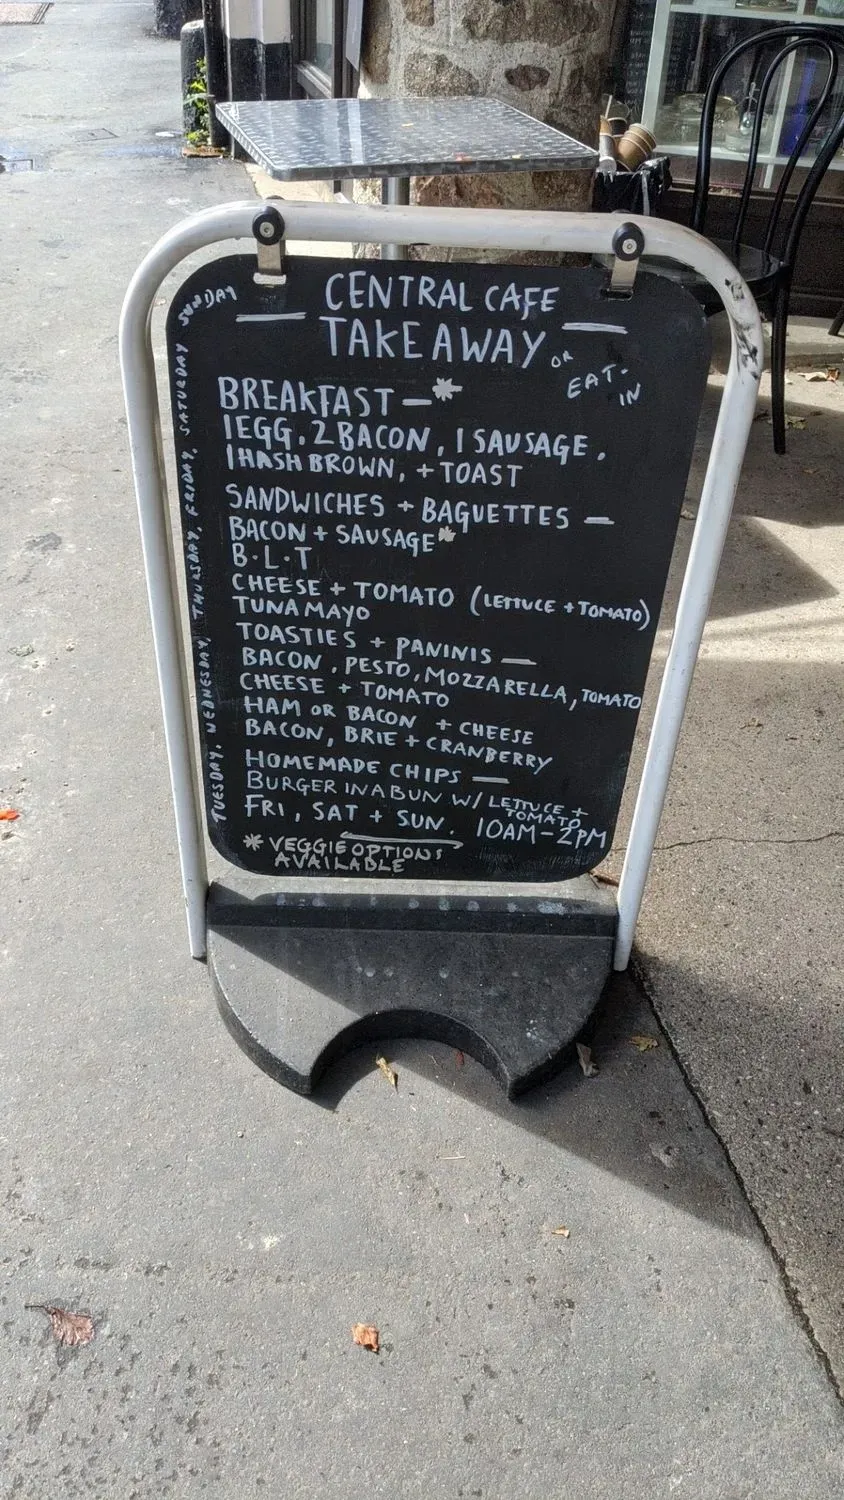 CENTRAL CAFE
TAKEAWAY OR
EAT-
IN
BREAKFAST — *
1 EGG, 2 BACON, 1 SAUSAGE,
1 HASH BROWN, + TOAST
SANDWICHES + BAGUETTES —
BACON + SAUSAGE *
B.L.T
CHEESE + TOMATO (LETTUCE + TOMATO)
TUNA MAYO
TOASTIES + PANINIS —
BACON, PESTO, MOZZARELLA, TOMATO
CHEESE + TOMATO
HAM OR BACON + CHEESE
BACON, BRIE + CRANBERRY
HOMEMADE CHIPS —
BURGER IN A BUN W/ LETTUCE +
TOMATO
FRI, SAT + SUN. 10AM-2PM
* VEGGIE OPTIONS
AVAILABLE
TUESDAY, WEDNESDAY, THURSDAY, FRIDAY, SATURDAY SUNDAY